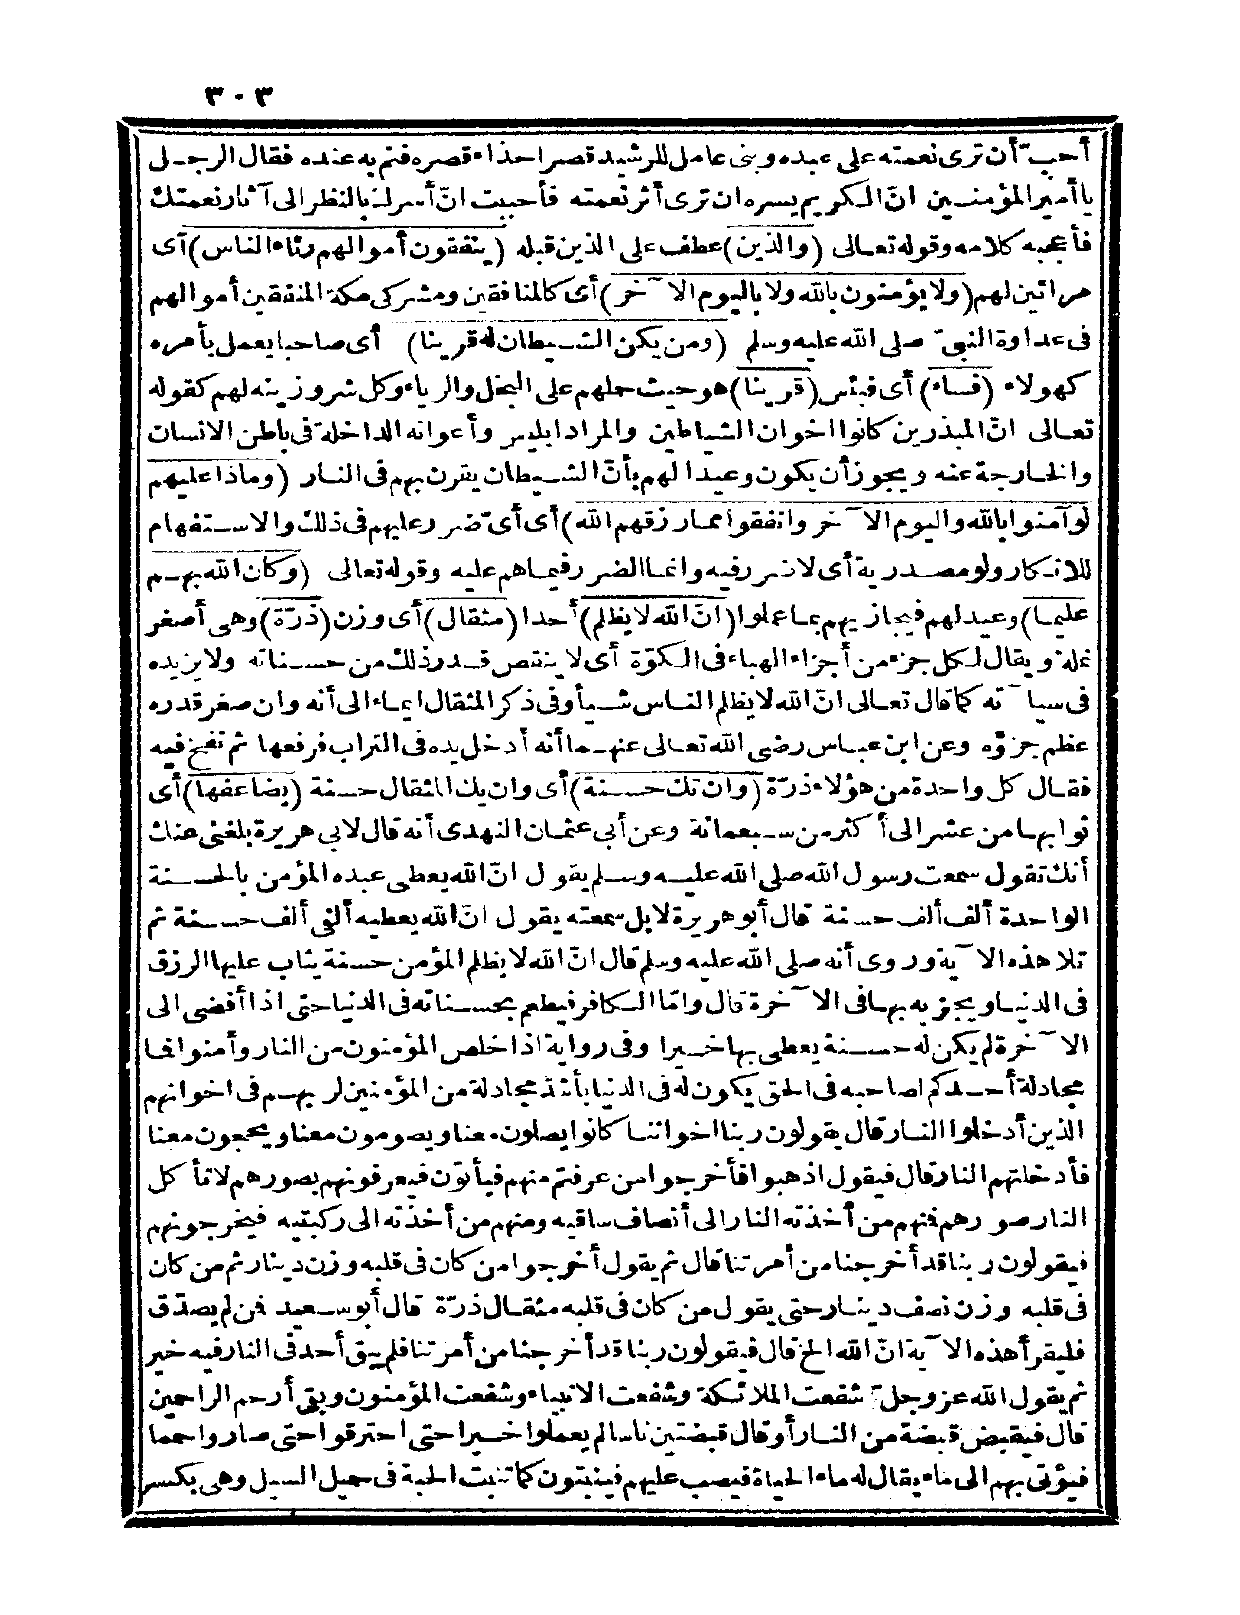 ٣٠٣
أحبّ أن ترى نعمته على عبده وبنى عامل للرشيد قصرا حذاء قصره فنم به عنده فقال الرجل
يا أمير المؤمنين انّ الكريم يسره ان ترى أثر نعمته فأحببت انّ أسرك بالنظر الى آثار نعمتك
فأعجبه كلامه وقوله تعالى (والذين) عطف على الذين قبله (ينفقون أموالهم رئاء الناس) أى
مراتين لهم (ولا يؤمنون بالله ولا باليوم الآخر) أى كالمنافقين ومشركى مكة المنفقين أموالهم
فى عداوة النبىّ صلى الله عليه وسلم (ومن يكن الشيطان له قرينا) أى صاحبا يعمل بأمره
كهولاء (فساء) أى فبئس (قرينا) هو حيث حملهم على البخل والرياء وكل شر وزينه لهم كقوله
تعالى انّ المبذرين كانوا اخوان الشياطين والمراد ابليس وأعوانه الداخلة فى باطن الانسان
والخارجة عنه ويجوز أن يكون وعيدا لهم بأنّ الشيطان يقرن بهم فى النار (وماذا عليهم
لو آمنوا بالله واليوم الآخر وانفقوا مما رزقهم الله) أى أىّ ضرر عليهم فى ذلك والاستفهام
للانكار ولو مصدرية أى لا ضرر فيه وانما الضرر فيما هم عليه وقوله تعالى (وكان الله بهم
عليما) وعيد لهم فيجازيهم بما عملوا (انّ الله لا يظلم) أحدا (مثقال) أى وزن (ذرّة) وهى أصغر
نملة ويقال لكل جزء من أجزاء الهباء فى الكوّة أى لا ينتقص قدر ذلك من حسناته ولا يزيده
فى سيآته كما قال تعالى انّ الله لا يظلم الناس شيأ وفى ذكر المثقال ايماء الى أنه وان صغر قدره
عظم جزؤه وعن ابن عباس رضى الله تعالى عنهما أنه أدخل يده فى التراب فرفعها ثم نفخ فيه
فقال كل واحدة من هؤلاء ذرّة (وان تك حسنة) أى وان يك المثقال حسنة (يضاعفها) أى
ثوابها من عشر الى أكثر من سبعمائة وعن أبى عثمان النهدى أنه قال لابى هريرة بلغنى عنك
أنك تقول سمعت رسول الله صلى الله عليه وسلم يقول انّ الله يعطى عبده المؤمن بالحسنة
الواحدة ألف ألف حسنة قال أبو هريرة لا بل سمعته يقول انّ الله يعطيه ألفى ألف حسنة ثم
تلا هذه الآية وروى أنه صلى الله عليه وسلم قال انّ الله لا يظلم المؤمن حسنة يثاب عليها الرزق
فى الدنيا ويجزيه بها فى الآخرة قال وامّا الكافر فيطعم بحسناته فى الدنيا حتى اذا أفضى الى
الآخرة لم يكن له حسنة يعطى بها خيرا وفى رواية اذا خلص المؤمنون من النار وأمنوا فما
مجادلة أحدكم لصاحبه فى الحق يكون له فى الدنيا بأشدّ مجادلة من المؤمنين لربهم فى اخوانهم
الذين أدخلوا النار قال يقولون ربنا اخواننا كانوا يصلون معنا ويصومون معنا ويحجون معنا
فأدخلتهم النار قال فيقول اذهبوا فأخرجوا من عرفتم منهم فيأتون فيعرفونهم بصورهم لا تأكل
النار صورهم فمنهم من أخذته النار الى أنصاف ساقيه ومنهم من أخذته الى ركبتيه فيخرجونهم
فيقولون ربنا قد أخرجنا من أمرتنا قال ثم يقول أخرجوا من كان فى قلبه وزن دينار ثم من كان
فى قلبه وزن نصف دينار حتى يقول من كان فى قلبه مثقال ذرّة قال أبو سعيد فمن لم يصدّق
فليقرأ هذه الآية انّ الله الخ قال فيقولون ربنا قد أخرجنا من أمرتنا فلم يبق أحد فى النار فيه خير
ثم يقول الله عز وجلّ شفعت الملائكة وشفعت الانبياء وشفعت المؤمنون وبقى أرحم الراحمين
قال فيقبض قبضة من النار أو قال قبضتين ناسا لم يعملوا خيرا حتى احترقوا حتى صاروا حمما
فيؤتى بهم الى ماء يقال له ماء الحياة فيصب عليهم فينبتون كما تنبت الحبة فى حميل السيل وهى بكسر